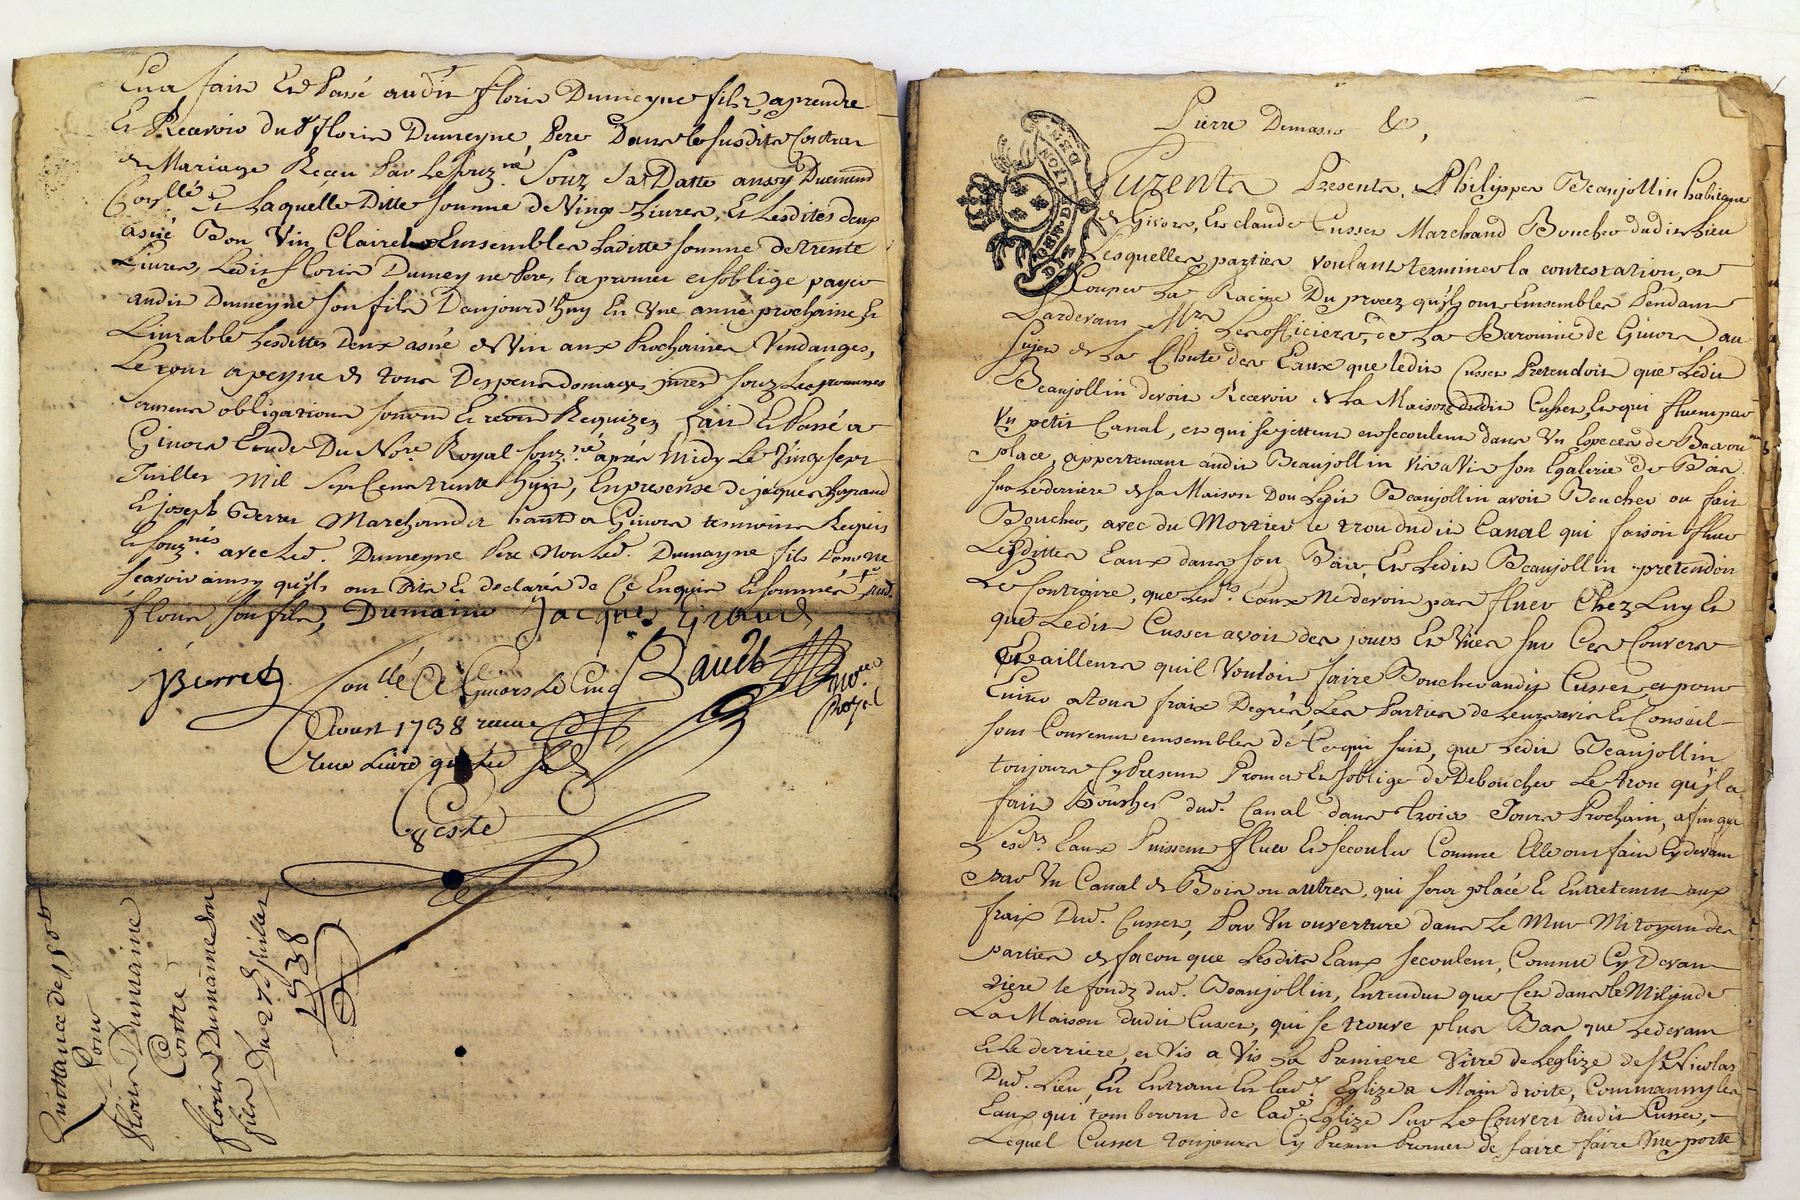 fait Et Passé audit floris Dumeyne fils, aprendre
Et Recevoir dud floris Dumeyne, Pere Dans le susdit Contrat
de Mariage Reçeu Par Le souz.né Souz Sa Datte aussy Duement
Con.llé Et Laquelle Ditte somme de Vingt Livres, Et Lesdites deux
asné Bon Vin Clairet Ensembles Laditte somme de trente
Livres, Ledit floris Dumeyne Pere, la promet et soblige payer
audit Dumeyne son fils D'aujourd'huy En Vne anné prochaine, Et
Livrable Lesdittes Deux asné de Vin aux Prochaines Vendanges,
Le tout a peyne de tous Despens domages souz Les promesses
obligations Requizes fait Et Passé a
Givors Etude Du No.re Royal souz.né aprés Midy Le Vingt sept
Juillet Mil Sept Cens trente huit, En presense de jaques
Et joseph Berret Marchands a Givors tesmoins Requis
Et souz.nés avec Led. Dumeyne Pere Non Led. Dumayne fils
scavoir ainsy quils ont Dit Et declarés de Ce Enquis Et sommés
floris son fils, Dumaine Jacques Giraud
JBerret
Con.llé A Givors Le Cinq
Aoust 1738 receu
Baudt No.re Royal
Reste
Quittance de 150 tt
Pour
floris Dumaine
Contre
floris Dumaine son
Du 27e juillet
1738
Pierre Demasso &,
GEN. DE LYON
Furent Presents, Philippes Beaujollin habitant
de Givors, Et claude Cusset Marchand Boucher dudit Lieu
Lesquelles parties voulant terminer la contestation, et
Couper La Racine Du procez qu'ils ont Ensembles Pendant
Pardevant M.rs Les officiers, de La Baronnie de Givors, au
sujet de La Chute des Eaux que ledit Cusset Pretendoit que Ledit
Beaujollin devoit Recevoir de La Maison dudit Cusset, Et qui fluent par
Vn petit Canal, et qui se jettent et secoulent dans Vn Espece de
place, appertenant audit Beaujollin Vis a Vis son Egalerie de Bois
sur Le derriere de sa Maison Dou Ledit Beaujollin avoit Boucher ou fait
Boucher, avec du Mortier le trou dudit Canal qui faisoit fluer
Lesdittes Eaux dans son Et Ledit Beaujollin pretendoit
Le Contraire, que Lesd.s Eaux Ne devoit pas fluer Chez Luy Et
que Ledit Cusset avoit des jours Et Vües sur Ces Couvers
Et ailleurs quil Vouloit faire Boucher audit Cusset, et pour
Euiter a tous fraix Degrés, Les Parties de Leurs avis Et Conseil
sont Convenus ensembles de Ce qui suit, que Ledit Beaujollin
toujours Cy Present Promet Et soblige de Deboucher Le trou qu'il a
fait Boucher dud. Canal dans trois Jours Prochain, afin que
Lesd.s Eaux Puissent fluer Et secouler Comme Elle ont fait Cy devant
par Vn Canal de Bois ou autres, qui sera placé Et Entretenu aux
fraix Dud. Cusset, Par Vn ouverture dans Le Mur Mitoyen des
parties de façon que Lesdits Eaux secoulent, Comme Cy Devant
riere le fondz dud. Beaujollin, Entendus que Cest dans le Milyeu de
La Maison dudit Cusset, qui se trouve plus Bas que Ledevant
Et Le derriere, et Vis a Vis La Premiere Vitre de Leglize de St Nicolas
Dud. Lieu, En Entrant En Lad.e Eglize a Main droite, Comm'aussy Les
Eaux qui tomberont de Lad.e Eglize Sur Le Couvert dudit Cusset,
Lequel Cusset toujours Cy Present Promet de faire faire Vne porte